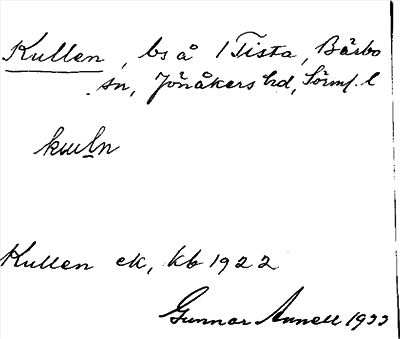 Kullen, bs å 1 Tista, Bärbo
sn, Jönåkers hd, Sörml. l
kuln
Kullen ek, kb 1922
Gunnar Annell 1933